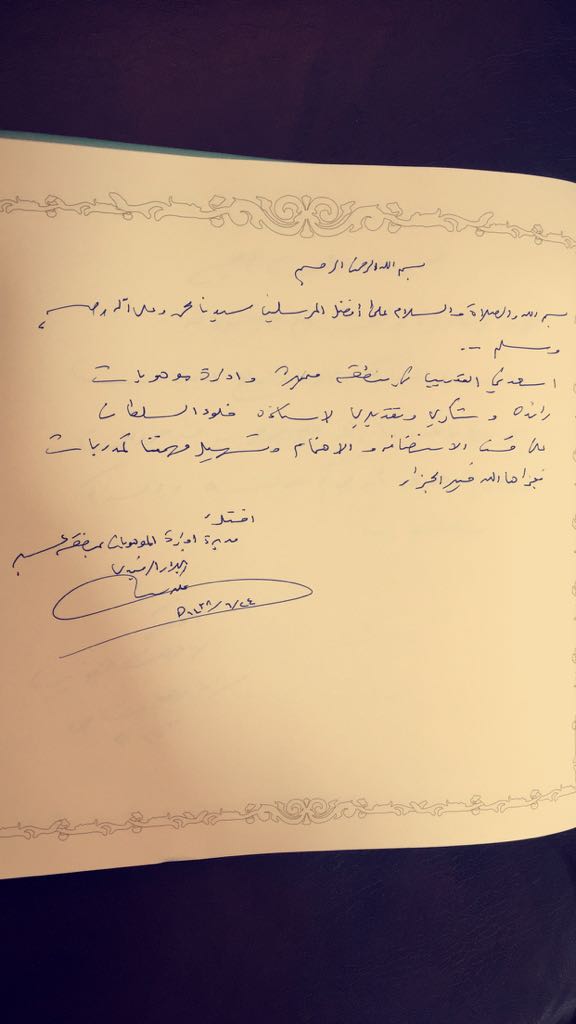 بسم الله الرحمن الرحيم
بسم الله والصلاة والسلام على أفضل المرسلين سيدنا محمد وعلى آله وصحبه
وسلم ..
اسعدني التدريب في منطقة مميزة وادارة موهوبات
رائدة وشكري وتقديري للاستاذه خلود السلطان
على حسن الاستضافه والاهتمام وتسهيل مهمتنا كمدربات
فجزاها الله خير الجزاء
اختك
مديرة ادارة الموهوبات بمنطقة
الرشيدي
١٤٣٨/٦/٢٤ه